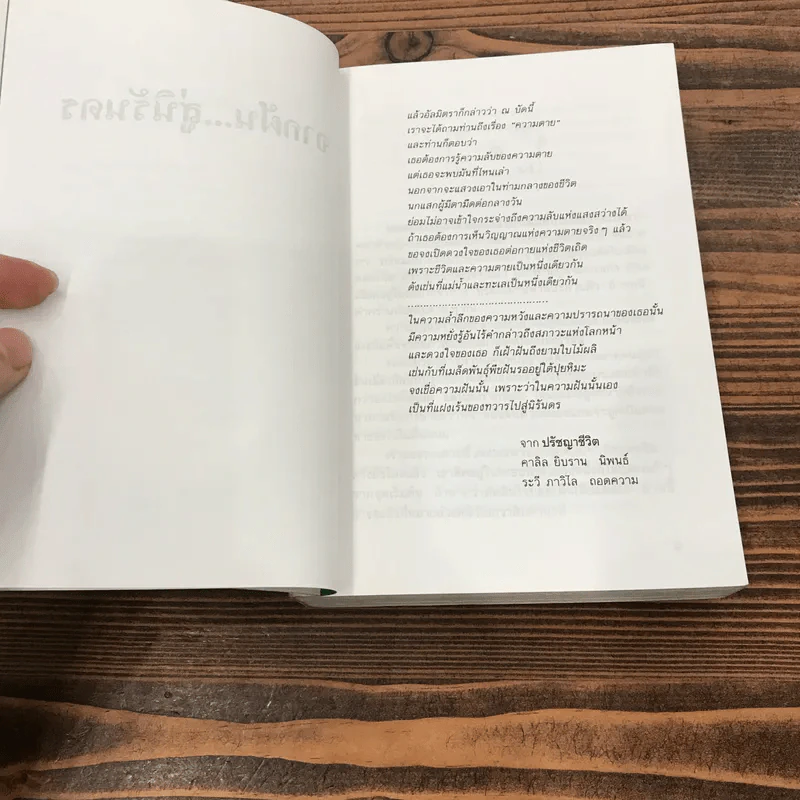 จากฝัน...สู่นิรันดร
แล้วอัลมิตราก็กล่าวว่า ณ บัดนี้
เราจะได้ถามท่านถึงเรื่อง "ความตาย"
และท่านก็ตอบว่า
เธอต้องการรู้ความลับของความตาย
แต่เธอจะพบมันที่ไหนเล่า
นอกจากจะแสวงเอาในท่ามกลางของชีวิต
นกแสกผู้มีตามืดต่อกลางวัน
ย่อมไม่อาจเข้าใจกระจ่างถึงความลับแห่งแสงสว่างได้
ถ้าเธอต้องการเห็นวิญญาณแห่งความตายจริง ๆ แล้ว
ขอจงเปิดดวงใจของเธอต่อกายแห่งชีวิตเถิด
เพราะชีวิตและความตายเป็นหนึ่งเดียวกัน
ดังเช่นที่แม่น้ำและทะเลเป็นหนึ่งเดียวกัน
...........................................
ในความล้ำลึกของความหวังและความปรารถนาของเธอนั้น
มีความหยั่งรู้อันไร้คำกล่าวถึงสภาวะแห่งโลกหน้า
และดวงใจของเธอ ก็เฝ้าฝันถึงยามใบไม้ผลิ
เช่นกับที่เมล็ดพันธุ์พืชฝันรออยู่ใต้ปุยหิมะ
จงเชื่อความฝันนั้น เพราะว่าในความฝันนั้นเอง
เป็นที่แฝงเร้นของทวารไปสู่นิรันดร
จาก ปรัชญาชีวิต
คาลิล ยิบราน นิพนธ์
ระวี ภาวิไล ถอดความ